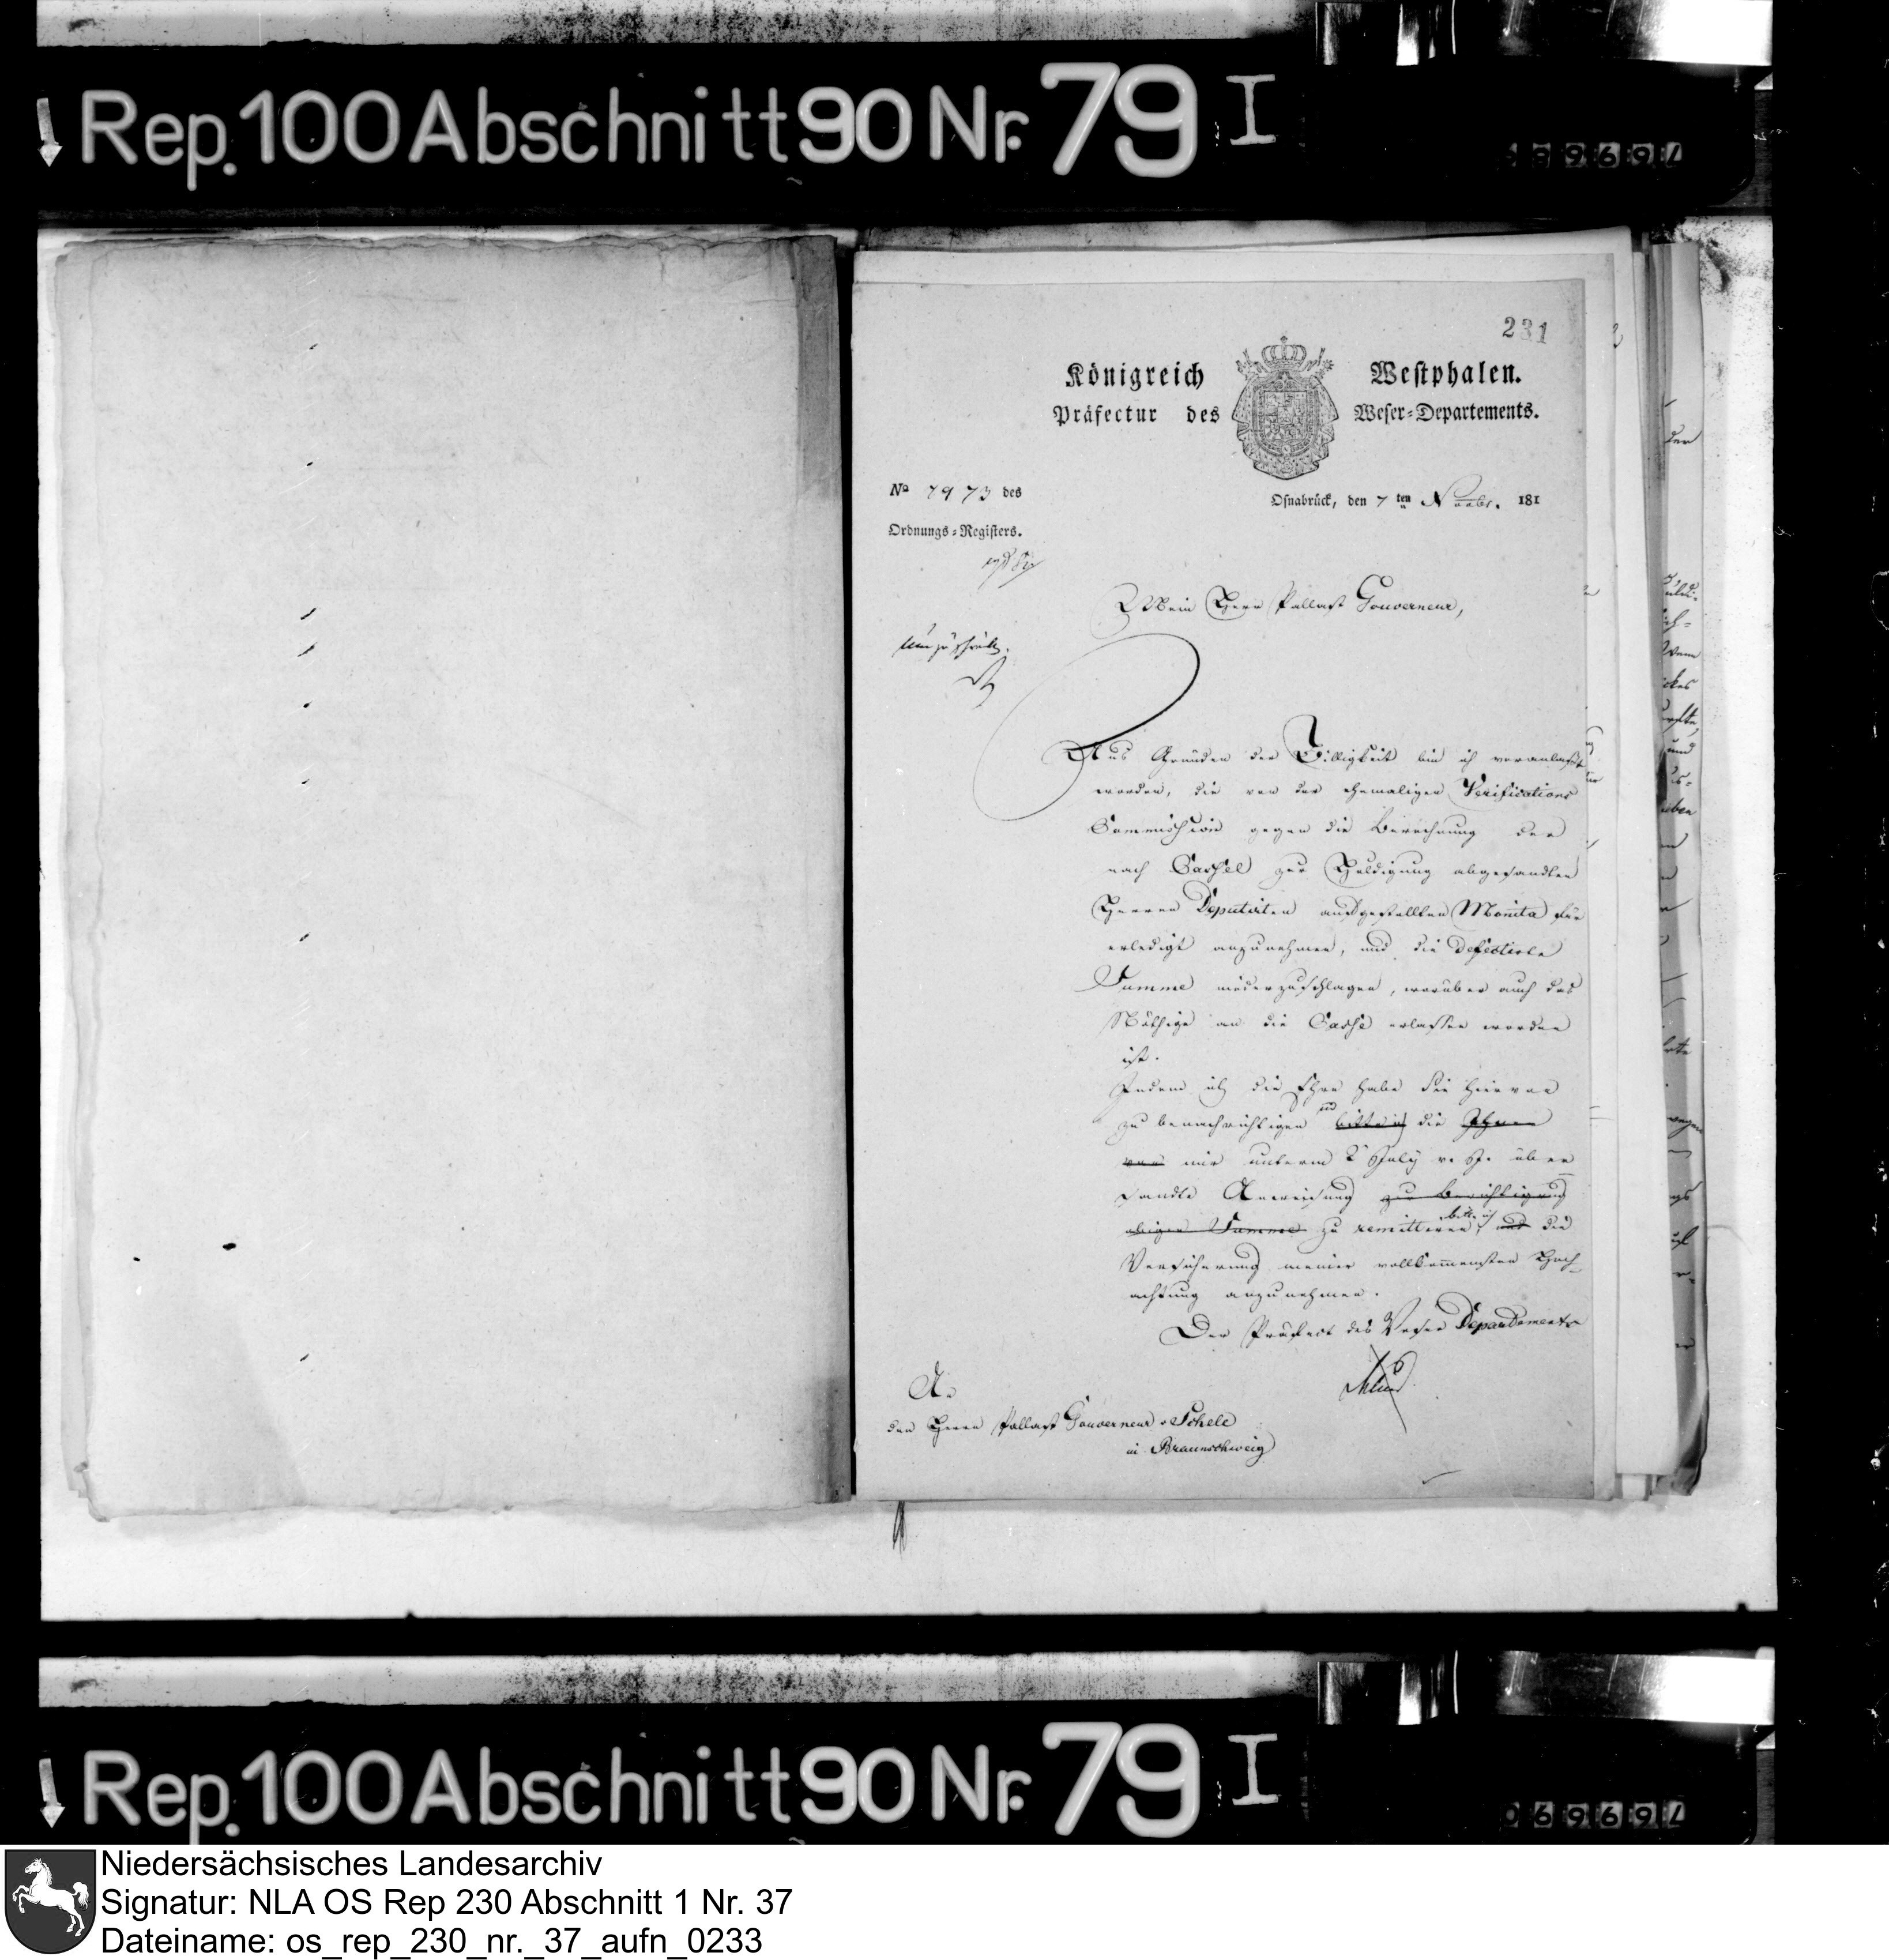 Rep. 100 Abschnitt 90 Nr. 79 I
231
Königreich Westphalen.
Präfectur des Weser=Departements.
No 7973 des
Ordnungs=Registers.
Osnabrück, den 7 ten Novbr. 181
Mein Herr Pallast Gouverneur,
Aus Gründen der Billigkeit bin ich veranlaßt
worden, die von der ehemaligen Verifications
Commission gegen die Berechnung der
nach Cassel zur Huldigung abgesandten
Herren Deputirten aufgestellten Monita für
erledigt anzunehmen, und die defectirte
Summe niederzuschlagen, worüber auch das
Nöthige an die Casse erlassen worden
ist.
Indem ich die Ehre habe Sie hiervon
zu benachrichtigen und bitte ich die Ihnen
von mir unterm 2 July v. J. über
sandte Anweisung zu Berichtigung
obiger Summe zu remittiren, bitte ich und die
Versicherung meiner vollkommensten Hoch
achtung anzunehmen.
Der Präfect des Weser Departements
An
den Herrn Pallast Gouverneur v Schele
in Braunschweig
Rep. 100 Abschnitt 90 Nr. 79 I
Niedersächsisches Landesarchiv
Signatur: NLA OS Rep 230 Abschnitt 1 Nr. 37
Dateiname: os_rep_230_nr._37_aufn_0233